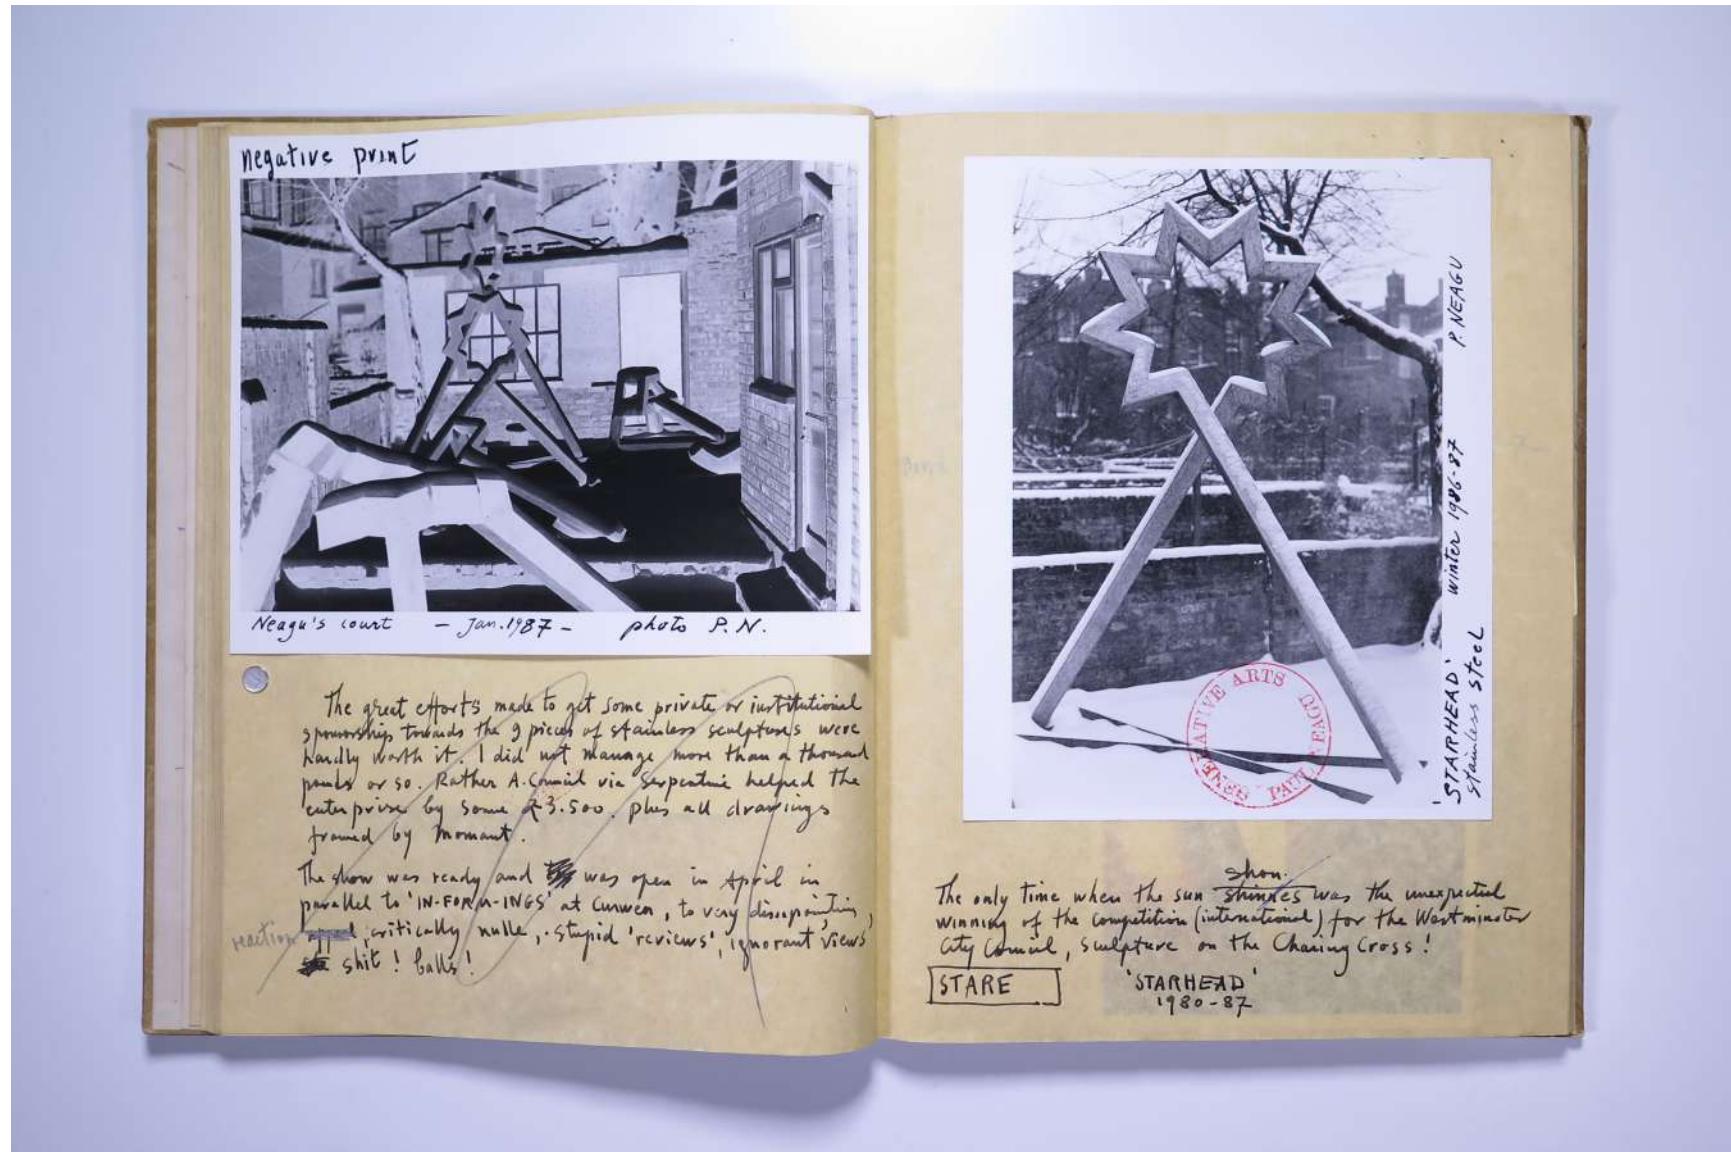 negative print
Neagu's court - Jan. 1987 - photo P.N.
The great efforts made to get some private or institutional
sponsorship towards the 9 pieces of stainless sculptures were
hardly worth it. I did not manage more than a thousand
or so. Rather A. Council via Serpentine helped the
enterprise by some £3.500. plus all drawings
framed by Momart.
The show was ready and was open in April in
parallel to 'IN-FORM-INGS' at Curwen, to very
reaction, critically nulle, stupid 'reviews', ignorant views
shit! balls!
'STARHEAD' winter 1986-87 P. NEAGU
stainless steel
GENERATIVE ARTS PAUL NEAGU
shon.
The only time when the sun shinnes was the unexpected
winning of the competition (international) for the Westminster
City Council, sculpture on the Charing Cross!
STARE
'STARHEAD'
1980-87